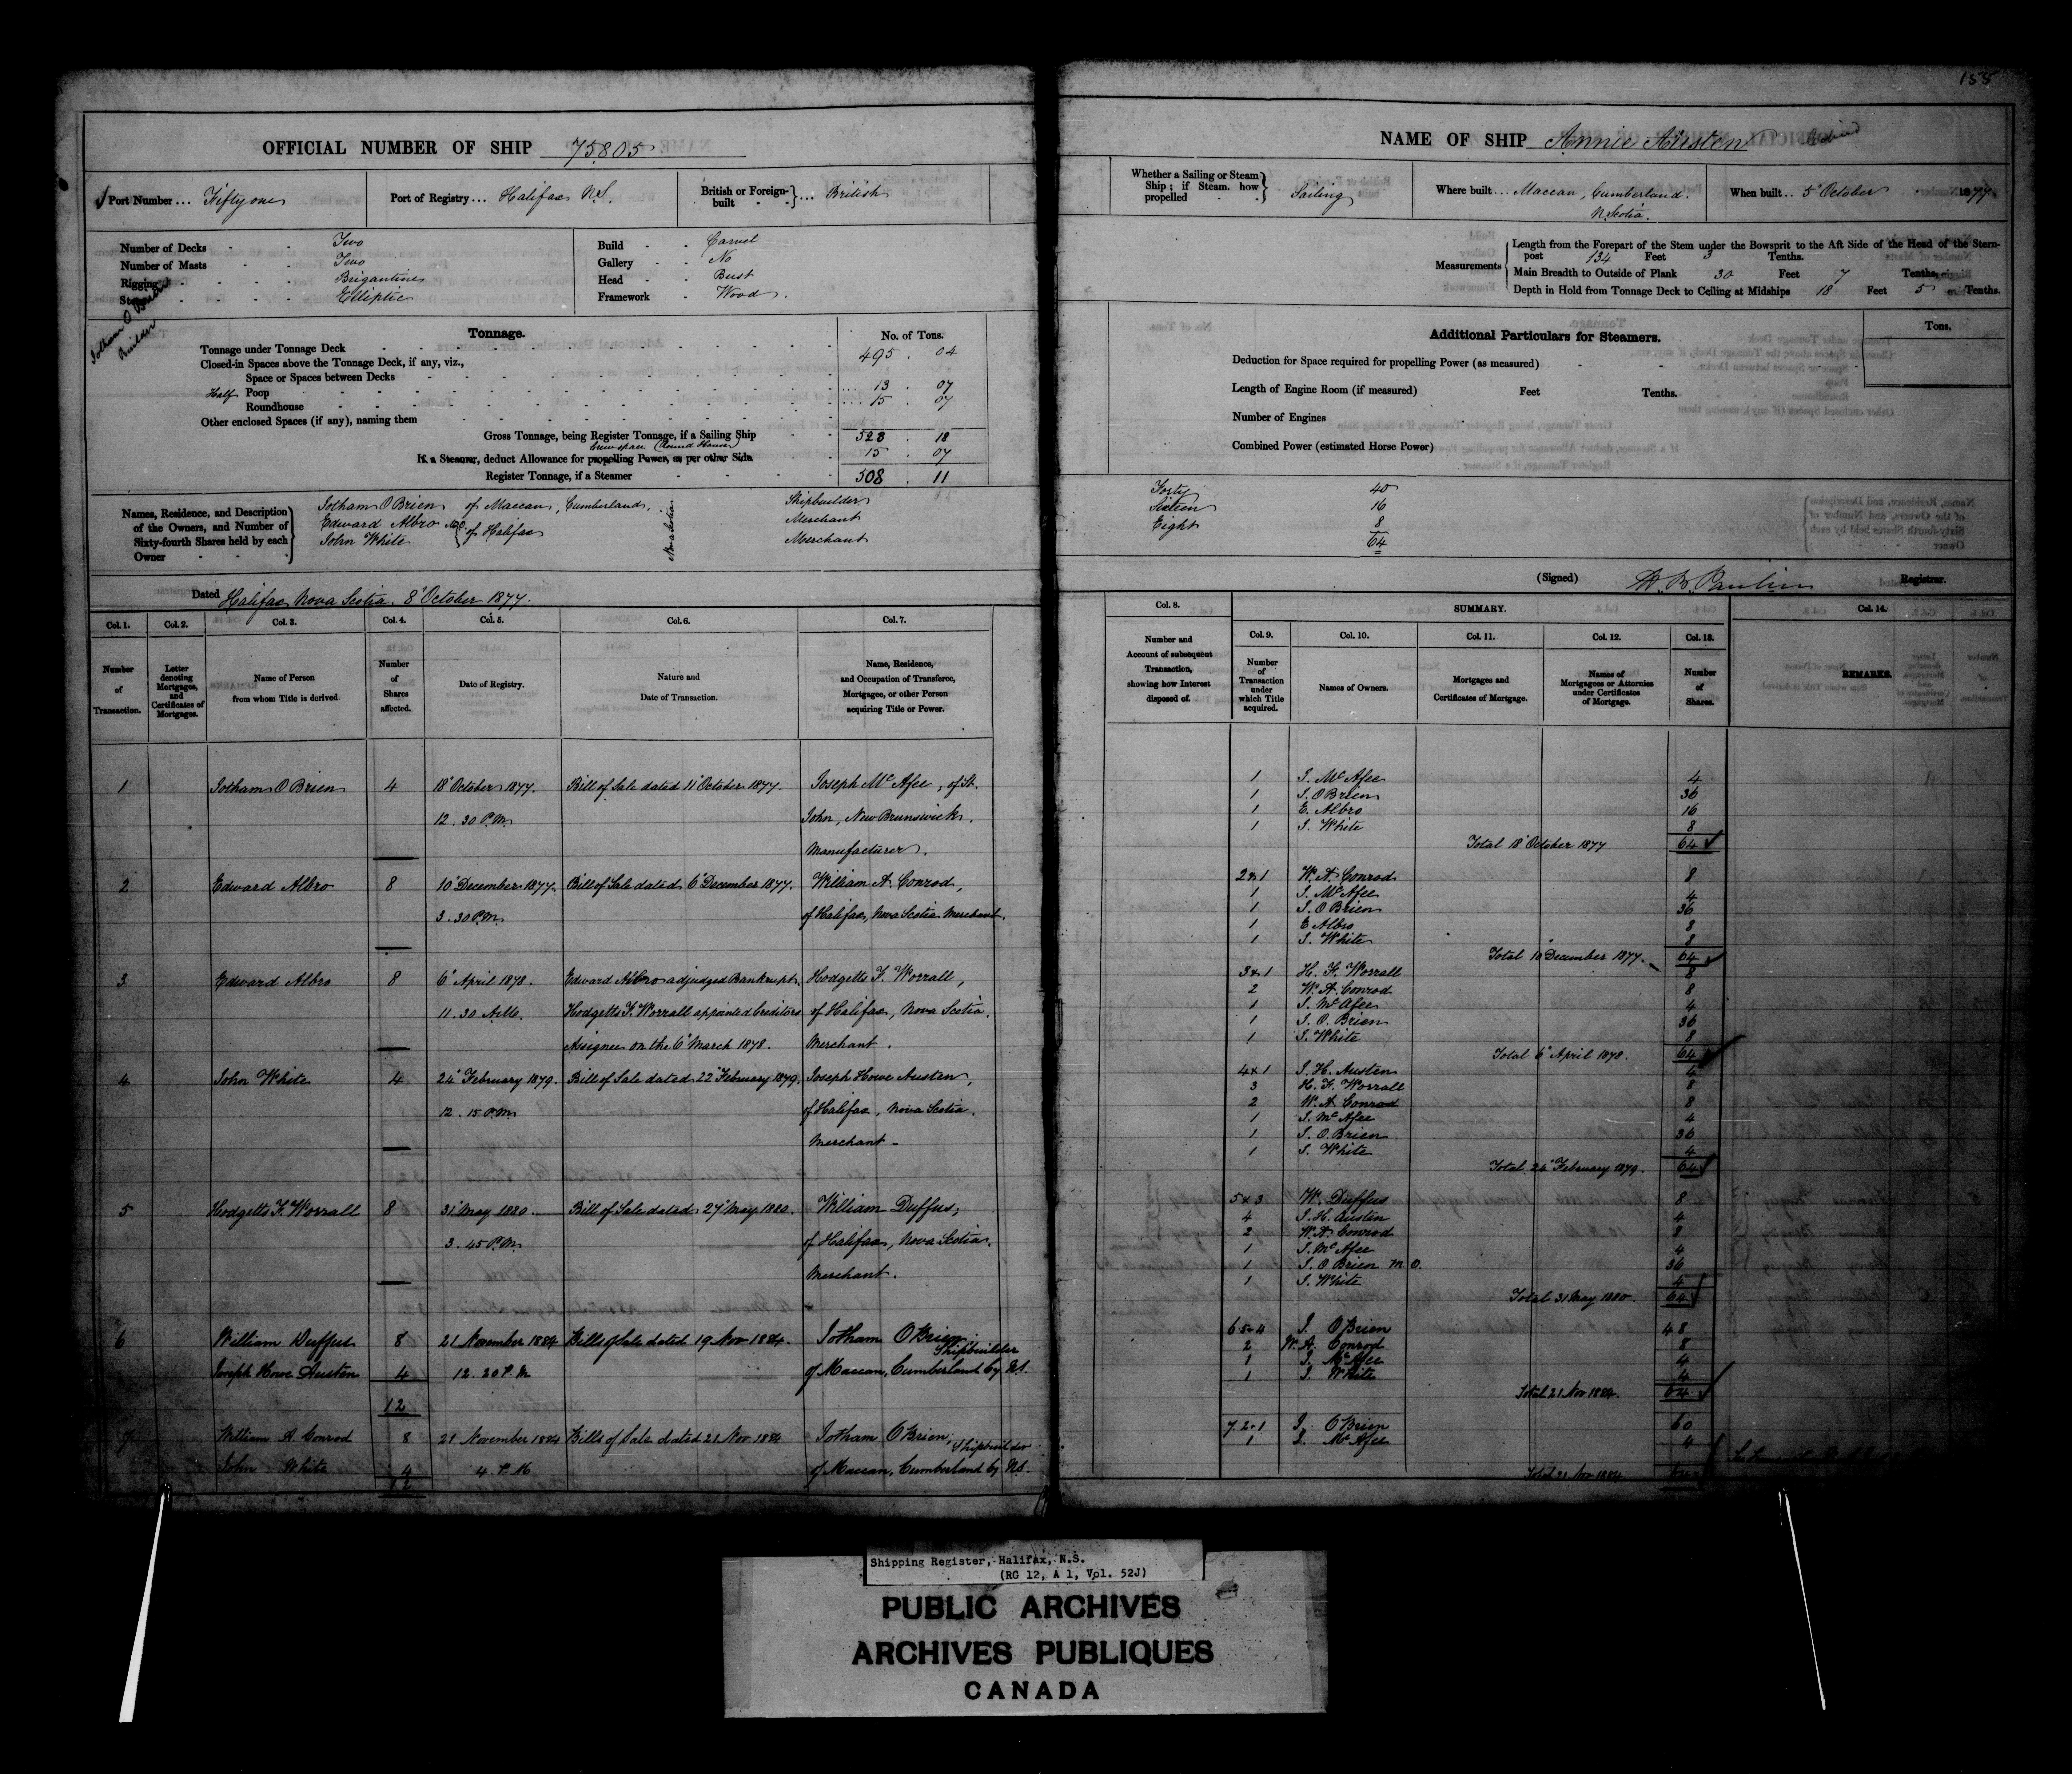 158
OFFICIAL NUMBER OF SHIP 75805
Port Number... Fifty one
Port of Registry... Halifax N.S.
British or Foreign-built - - }... British
Number of Decks - - Two
Number of Masts - - Two
Rigging - - - - Brigantine
Stern - - - - Elliptic
Build - - Carvel
Gallery - - No
Head - - Bust
Framework - Wood.
Jotham O'Brien
Builder
Tonnage.
No. of Tons.
Tonnage under Tonnage Deck 495 . 04
Closed-in Spaces above the Tonnage Deck, if any, viz.,
Space or Spaces between Decks
Half Poop 13 . 07
Roundhouse 15 . 07
Other enclosed Spaces (if any), naming them
Gross Tonnage, being Register Tonnage, if a Sailing Ship 523 . 18
Crewspace (Round House)
If a Steamer, deduct Allowance for propelling Power, as per other Side 15 . 07
Register Tonnage, if a Steamer 508 . 11
Names, Residence, and Description of the Owners, and Number of Sixty-fourth Shares held by each Owner - - -
Jotham O'Brien of Maccan, Cumberland, Shipbuilder
Edward Albro M.O. Merchant
John White } of Halifax Merchant
Nova Scotia
Dated Halifax Nova Scotia. 8° October 1877.
NAME OF SHIP Annie Austen
Whether a Sailing or Steam Ship; if Steam. how propelled - - } Sailing
Where built... Maccan, Cumberland. N. Scotia.
When built... 5° October 1877
Measurements
Length from the Forepart of the Stem under the Bowsprit to the Aft Side of the Head of the Stern-
post 134 Feet 3 Tenths.
Main Breadth to Outside of Plank 30 Feet 7 Tenths.
Depth in Hold from Tonnage Deck to Ceiling at Midships 18 Feet 5 Tenths.
Additional Particulars for Steamers.
Tons.
Deduction for Space required for propelling Power (as measured)
Length of Engine Room (if measured) Feet Tenths.
Number of Engines
Combined Power (estimated Horse Power)
Forty 40
Sixteen 16
Eight 8
64
(Signed) Registrar.
Col. 1. Col. 2. Col. 3. Col. 4. Col. 5. Col. 6. Col. 7.
Number of Transaction.
Letter denoting Mortgages, and Certificates of Mortgages.
Name of Person from whom Title is derived
Number of Shares affected.
Date of Registry.
Nature and Date of Transaction.
Name, Residence, and Occupation of Transferee, Mortgagee, or other Person acquiring Title or Power.
1 Jotham O'Brien 4 18° October 1877. Bill of Sale dated 11° October 1877. Joseph McAfee, of St.
12 . 30 P.M. John, New Brunswick.
Manufacturer.
2 Edward Albro 8 10° December 1877. Bill of Sale dated 6° December 1877. William A. Conrod,
3 . 30 P.M. of Halifax, Nova Scotia Merchant.
3 Edward Albro 8 6° April 1878. Edward Albro adjudged Bankrupt. Hodgetts F. Worrall,
11 . 30 A.M. Hodgetts F. Worrall appointed Creditors of Halifax, Nova Scotia.
Assignee on the 6° March 1878. Merchant.
4 John White 4 24° February 1879. Bill of Sale dated 22° February 1879. Joseph Howe Austen,
12 . 15 P.M. of Halifax, Nova Scotia.
Merchant -
5 Hodgetts F. Worrall 8 31° May 1880. Bill of Sale dated 27° May 1880. William Duffus,
3 . 45 P.M. of Halifax, Nova Scotia.
Merchant.
6 William Duffus 8 21 November 1884 Bills of Sale dated 19 Nov 1884. Jotham O'Brien
Shipbuilder
Joseph Howe Austen 4 12 . 20 P. M of Maccan, Cumberland Cy NS.
12
7 William A. Conrod 8 21 November 1884 Bills of Sale dated 21 Nov 1884 Jotham O'Brien,
Shipbuilder
John White 4 4 . P. M of Maccan, Cumberland Cy NS.
12
Col. 8. SUMMARY. Col. 14.
Col. 9. Col. 10. Col. 11. Col. 12. Col. 13.
Number and Account of subsequent Transaction, showing how Interest disposed of.
Number of Transaction under which Title acquired.
Names of Owners.
Mortgages and Certificates of Mortgage.
Names of Mortgagees or Attornies under Certificates of Mortgage.
Number of Shares.
REMARKS.
1 J. McAfee 4
1 J. O'Brien 36
1 E. Albro 16
1 J. White 8
Total 18° October 1877 64
2 & 1 W. A. Conrod 8
1 J. McAfee 4
1 J. O'Brien 36
1 E Albro 8
1 J. White 8
Total 10° December 1877. 64
3 & 1 H. F. Worrall 8
2 W. A. Conrod 8
1 J. McAfee 4
1 J. O. Brien 36
1 J. White 8
Total 6° April 1878. 64
4 & 1 J. H. Austen 4
3 H. F. Worrall 8
2 W. A. Conrod 8
1 J. McAfee 4
1 J. O. Brien 36
1 J. White 4
Total 24° February 1879. 64
5 & 3 W. Duffus 8
4 J. H. Austen 4
2 W. A. Conrod 8
1 J. McAfee 4
1 J. O'Brien M. O. 36
1 J. White 4
Total 31 May 1880. 64
6.5.4 J. O'Brien 48
2 W. A. Conrod 8
1 J. McAfee 4
1 J. White 4
Total 21 Nov 1884. 64
7.2.1 J. O'Brien 60
1 J. McAfee 4
Total 21 Nov 1884 64
Shipping Register, Halifax, N.S.
(RG 12, A 1, Vol. 52J)
PUBLIC ARCHIVES
ARCHIVES PUBLIQUES
CANADA